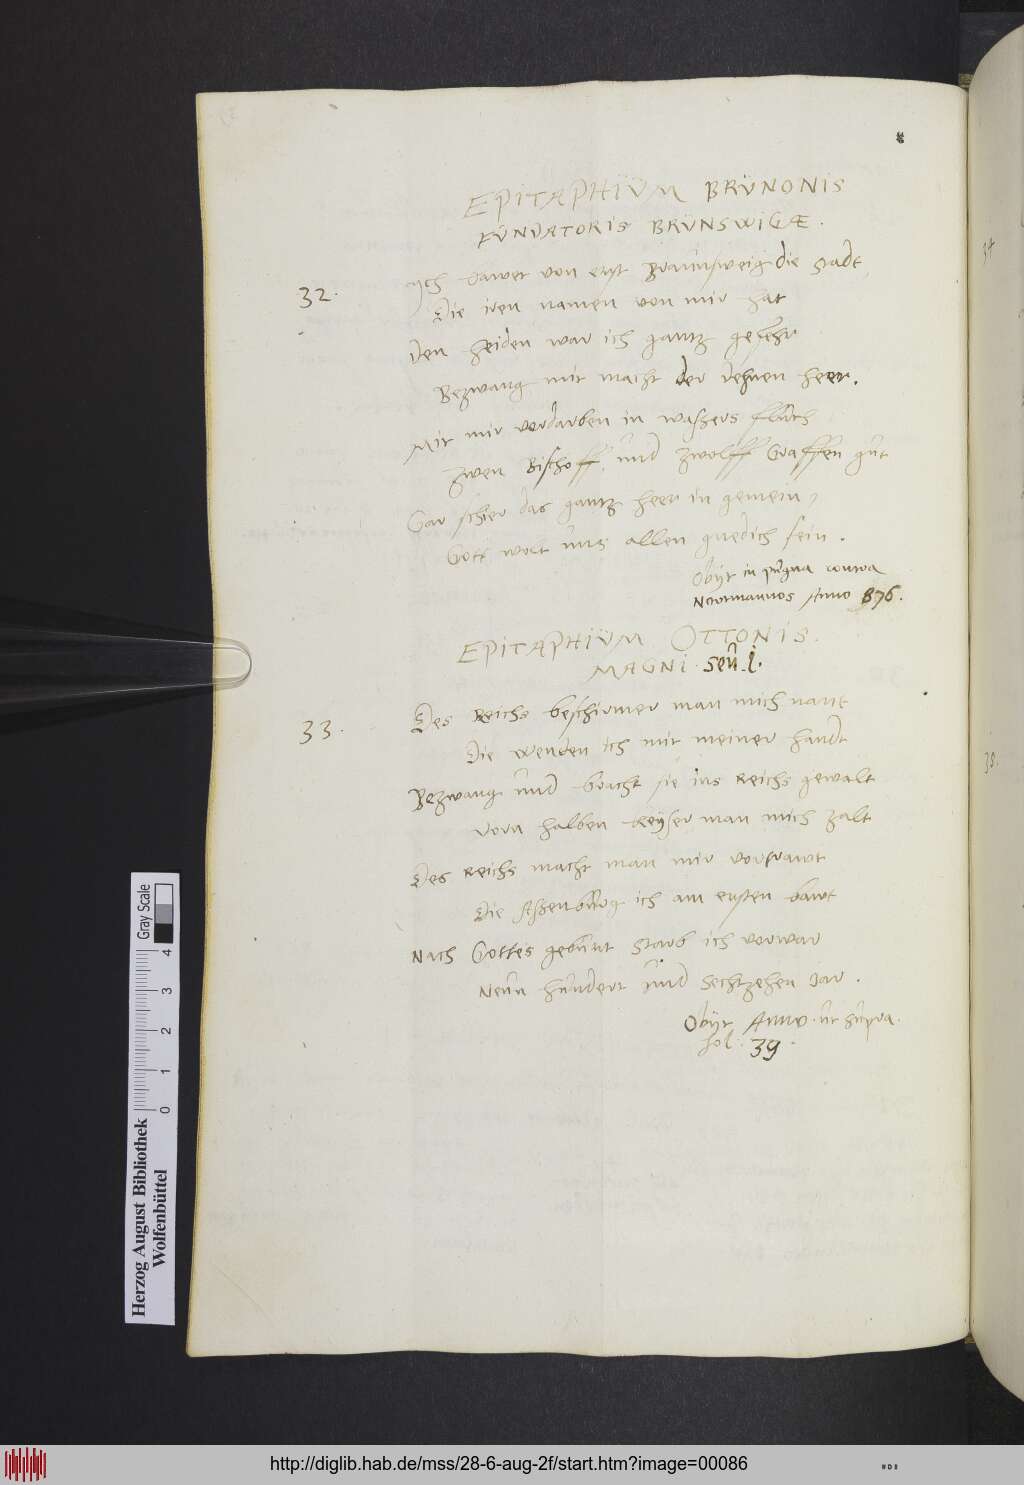 EPITAPHIŬM BRŬNONIS
FŬNDATORIS BRŬNSWIGÆ.
32.
Ich bawet von erst Braŭnsweig die Stadt,
Die iren namen von mir hat
Den Heiden war ich gantz gefehr
Bezwang mit macht der Dehnen heer.
Mit mir vordarben in waßers flŭth
Zwen Bischoff, ŭnd zwolff Graffen gŭt
Gar schier das gantz heer in gemein,
Gott wolt ŭns allen gnedich sein.
Obijt in pŭgna contra
Normannos Anno 876.
EPITAPHIŬM OTTONIS.
MAGNI. Seŭ. I.
33.
Des Reichs beschirmer man mich nant
Die Wenden ich mit meiner handt
Bezwang ŭnd bracht sie ins Reichs gewalt
Vorn halben Keÿser man mich zalt
Des Reichs macht man mir vortrawt
Die Aßenbŭrg ich am ersten bawt
Nach Gottes gebŭrt starb ich vorwar
Neŭn hŭndert ŭnd sechtzehen Jar.
Obijt Anno. ŭt sŭpra.
fol. 39.
34
35.
Herzog August Bibliothek
Wolfenbüttel
0 1 2 3 4
Gray Scale
http://diglib.hab.de/mss/28-6-aug-2f/start.htm?image=00086